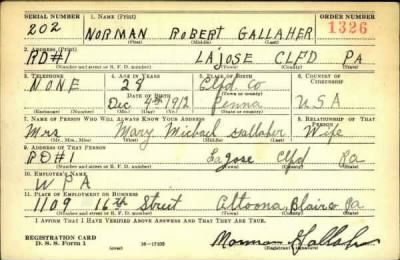 SERIAL NUMBER 1. NAME (Print) ORDER NUMBER
202 NORMAN ROBERT GALLAHER 1326
(First) (Middle) (Last)
2. ADDRESS (Print)
RD#1 LAJOSE CLFD PA
(Number and street or R. F. D. number) (Town) (County) (State)
3. TELEPHONE 4. AGE IN YEARS 5. PLACE OF BIRTH 6. COUNTRY OF CITIZENSHIP
NONE 29 Clfd Co
DATE OF BIRTH (Town or county)
Dec 4th 1912 Penna USA
(Exchange) (Number) (Mo.) (Day) (Yr.) (State or country)
7. NAME OF PERSON WHO WILL ALWAYS KNOW YOUR ADDRESS 8. RELATIONSHIP OF THAT PERSON
Mrs Mary Michael Gallaher Wife
(Mr., Mrs., Miss) (First) (Middle) (Last)
9. ADDRESS OF THAT PERSON
RD#1 LaJose Clfd Pa
(Number and street or R. F. D. number) (Town) (County) (State)
10. EMPLOYER'S NAME
WPA
11. PLACE OF EMPLOYMENT OR BUSINESS
1109 16th Street Altoona, Blair Co Pa
(Number and street or R. F. D. number) (Town) (County) (State)
I AFFIRM THAT I HAVE VERIFIED ABOVE ANSWERS AND THAT THEY ARE TRUE.
REGISTRATION CARD
D. S. S. Form 1 (over) 16—17105 Norman Gallaher